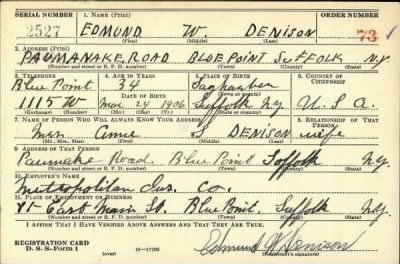 SERIAL NUMBER 1. NAME (Print) ORDER NUMBER
2527 EDMUND W. DENISON 73
(First) (Middle) (Last)
2. ADDRESS (Print)
PAUMANAKE ROAD BLUE POINT SUFFOLK N.Y.
(Number and street or R. F. D. number) (Town) (County) (State)
3. TELEPHONE 4. AGE IN YEARS 5. PLACE OF BIRTH 6. COUNTRY OF CITIZENSHIP
Blue Point 34 Sag Harbor
DATE OF BIRTH (Town or county)
1115 W Mar. 24 1906 Suffolk N.Y. U.S.A.
(Exchange) (Number) (Mo.) (Day) (Yr.) (State or country)
7. NAME OF PERSON WHO WILL ALWAYS KNOW YOUR ADDRESS 8. RELATIONSHIP OF THAT PERSON
Mrs. S DENISON wife
(Mr., Mrs., Miss) (First) (Middle) (Last)
9. ADDRESS OF THAT PERSON
Paumake Road, Blue Point Soffolk N.Y.
(Number and street or R. F. D. number) (Town) (County) (State)
10. EMPLOYER'S NAME
Metropolitan Ins. Co.
11. PLACE OF EMPLOYMENT OR BUSINESS
East Main St. Blue Point. Suffolk N.Y.
(Number and street or R. F. D. number) (Town) (County) (State)
I AFFIRM THAT I HAVE VERIFIED ABOVE ANSWERS AND THAT THEY ARE TRUE.
REGISTRATION CARD
D. S. S. Form 1 (over) 16—17105 Edmund W Denison
(Registrant's signature)